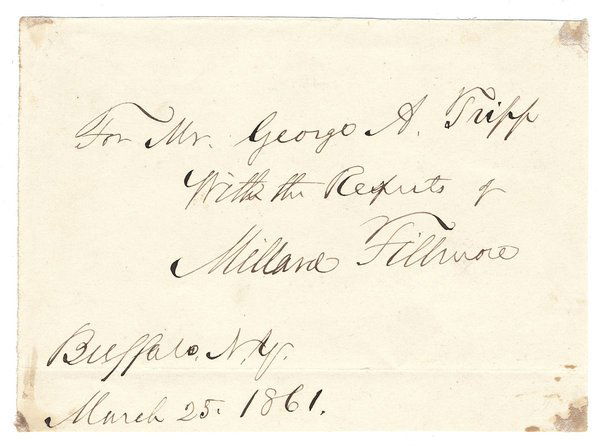 For Mr. George A. Tripp
With the Respects of
Millard Fillmore
Buffalo, N.Y.
March 25. 1861.